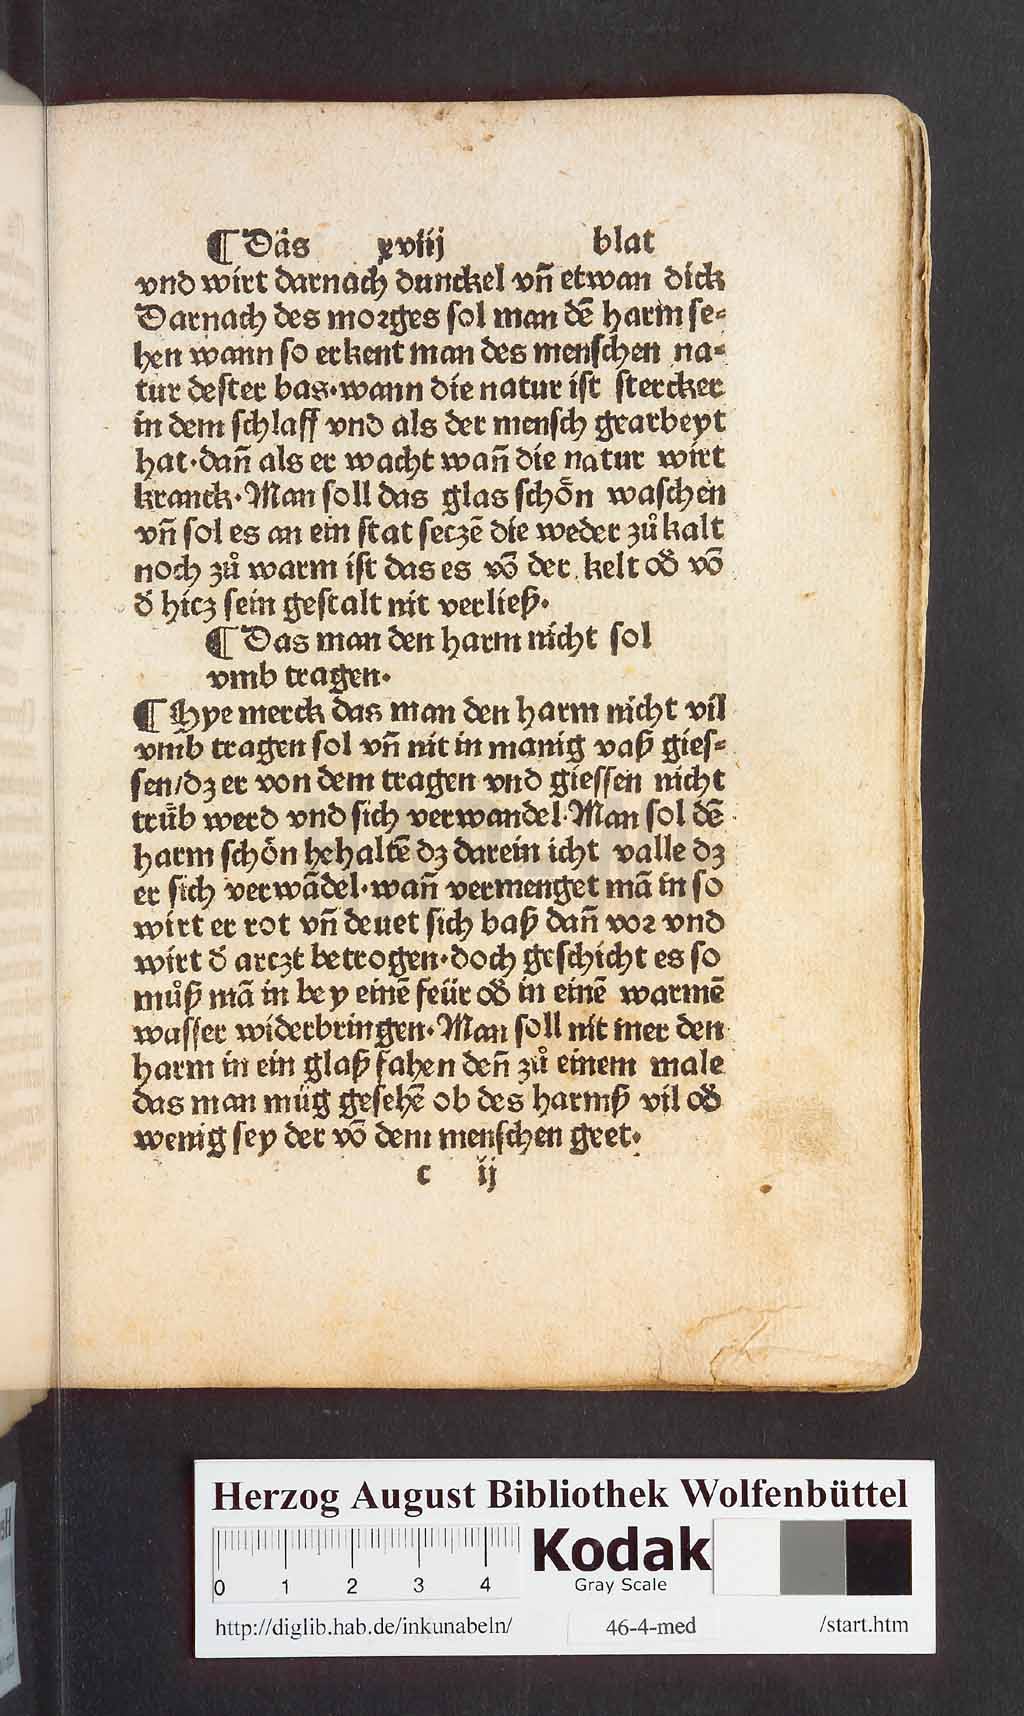 ¶ Das xviij blat
vnd wirt darnach dunckel vn̄ etwan dick
Darnach des morges sol man dē harm se⸗
hen wann so erkent man des menschen na⸗
tur dester bas·wann die natur ist stercker
in dem schlaff vnd als der mensch gearbeyt
hat·dan̄ als er wacht wan̄ die natur wirt
kranck·Man soll das glas schön waschen
vn̄ sol es an ein stat seczē die weder zů kalt
noch zů warm ist das es vō der kelt od̕ vō
d̕ hicz sein gestalt nit verließ·
¶ Das man den harm nicht sol
vmb tragen·
¶ Hye merck das man den harm nicht vil
vmb tragen sol vn̄ nit in manig vaß gies⸗
sen/dz er von dem tragen vnd giessen nicht
trüb werd vnd sich verwandel·Man sol dē
harm schön hehaltē dz darein icht valle dz
er sich verwādel·wan̄ vermenget mā in so
wirt er rot vn̄ deuet sich baß dan̄ vor vnd
wirt d̕ arczt betrogen·doch geschicht es so
můß mā in bey einē feür od̕ in einē warmē
wasser widerbringen·Man soll nit mer den
harm in ein glaß fahen den̄ zů einem male
das man müg gesehē ob des harmß vil od̕
wenig sey der vō dem menschen geet·
c ij
Herzog August Bibliothek Wolfenbüttel
0 1 2 3 4
Kodak
Gray Scale
http://diglib.hab.de/inkunabeln/ 46-4-med /start.htm